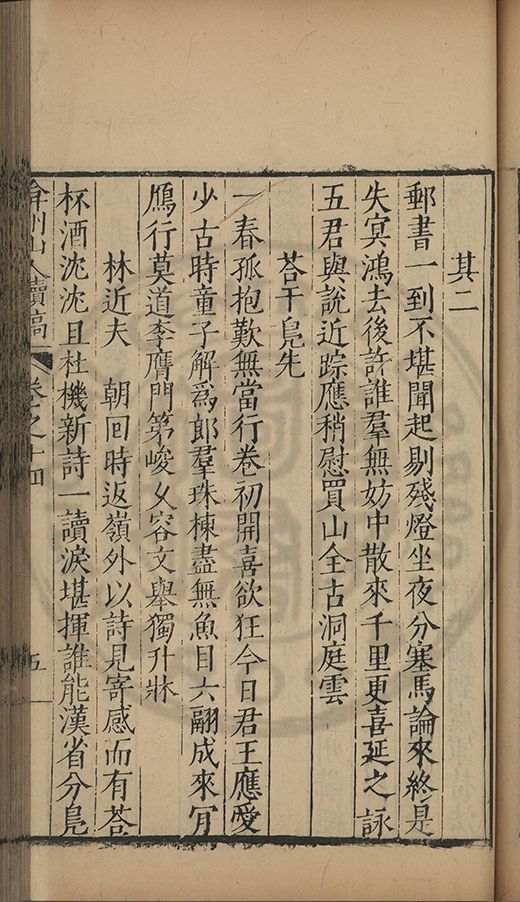 其二
郵書一到不堪聞起剔殘燈坐夜分塞馬論來終是
失冥鴻去後許誰羣無妨中散來千里更喜延之詠
五君與說近踪應稍慰買山全古洞庭雲
荅干鳧先
一春孤抱歎無當行卷初開喜欲狂今日君王應愛
少古時童子解爲郎羣珠棟盡無魚目六翮成來
鴈行莫道李膺門第峻乂容文舉獨升牀
林近夫 朝回時返嶺外以詩見寄感而有荅
杯酒沈沈且杜機新詩一讀淚堪揮誰能漢省分鳧
弇州山人續稿 卷之十四 五